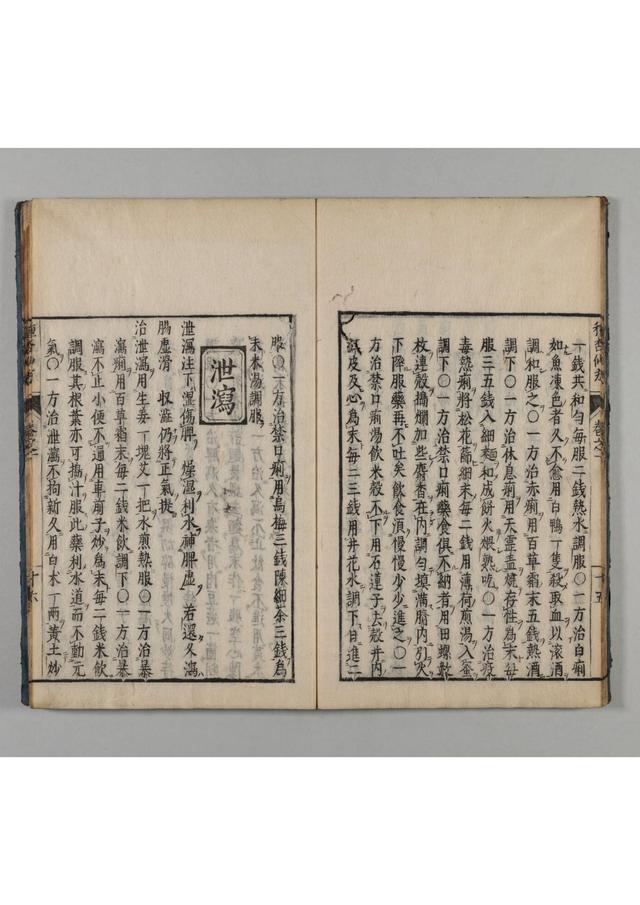 一錢共和勻每服二錢熱水調服○一方治白痢
如魚凍色者久不愈用白鴨一隻殺取血以滾酒
調和服之○一方治赤痢用百草霜末五錢熱酒
調下○一方治休息痢用天靈盖燒存性為末每
服三五錢入細麵和成餅火煨熟吃○一方治疫
毒熱痢將松花蘂細末每二錢用薄荷煎湯入蜜
調下○一方治禁口痢藥食俱不納者用田螺
枚連殼搗爛加些麝香在內調勻填滿臍內引火
下降服藥再不吐矣飲食須慢慢少少進之○一
方治禁口痢湯飲米殺不下用石蓮子去殼并內
皮及心為末每二三錢用井花水調下日進二
十五
服○一方治禁口痢用烏梅三錢陳細茶三錢為
末木湯調服
泄瀉
泄瀉注下濕傷脾 燥濕利水神脾虛 若還久瀉
腸虛滑 收澁仍將正氣提
治泄瀉用生姜一塊艾一把水煎熱服○一方治暴
瀉痢用百草霜末每二錢米飲調下○一方治暴
瀉不止小便不通用車前子炒為末每二錢米飲
調服其根葉亦可搗汁服此藥利水道而不動元
氣○一方治泄瀉不拘新久用白术一兩黃土炒
十六